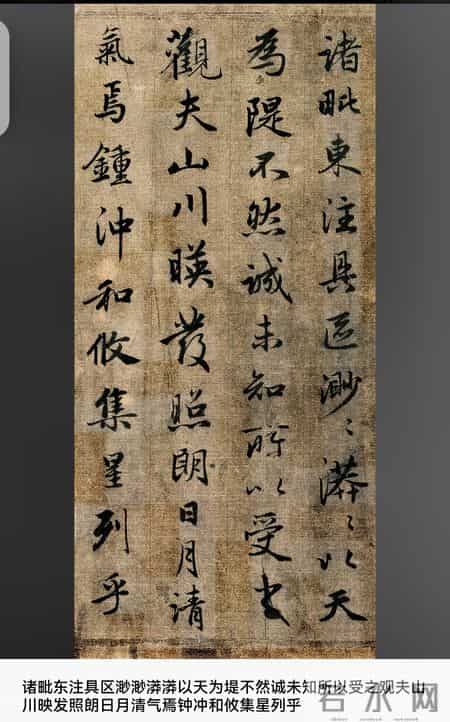 诸毗東注具區渺〻漭〻以天
為隄不然誠未知所以受之
觀夫山川暎發照朗日月清
氣焉鍾沖和攸集星列乎
诸毗东注具区渺渺漭漭以天为堤不然诚未知所以受之观夫山
川映发照朗日月清气焉钟冲和攸集星列乎
名水网